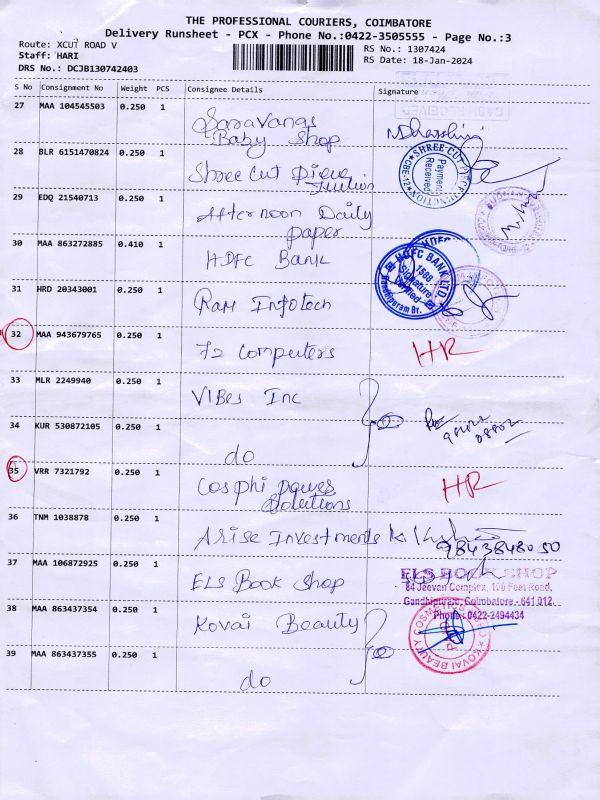 THE PROFESSIONAL COURIERS, COIMBATORE
Delivery Runsheet - PCX - Phone No.:0422-3505555 - Page No.:3
Route: XCUT ROAD V
RS No.: 1307424
Staff: HARI
RS Date: 18-Jan-2024
DRS No.: DCJB130742403
S No Consignment No Weight PCS Consignee Details Signature
27 MAA 104545503 0.250 1 Saravanas Baby Shop
28 BLR 6151470824 0.250 1 Shree Cut
SHREE CUT
Payment Received
CBE-12
29 EDQ 21540713 0.250 1 Afternoon Daily paper
30 MAA 863272885 0.410 1 HDFC Bank
HDFC BANK LTD.
1588
Signature Verified
Gandhipuram Br.
31 HRD 20343001 0.250 1 Ram Infotech
32 MAA 943679765 0.250 1 72 Computers HR
33 MLR 2249940 0.250 1 Vibes Inc
34 KUR 530872105 0.250 1 do
35 VRR 7321792 0.250 1 Cosphi power Solutions HR
36 TNM 1038878 0.250 1 Arise Investments
9843848050
37 MAA 106872925 0.250 1 ELS Book Shop
ELS BOOK SHOP
84 Jeevan Complex, 100 Feet Road,
Gandhipuram, Coimbatore - 641 012.
Phone : 0422-2494434
38 MAA 863437354 0.250 1 Kovai Beauty
KOVAI BEAUTY COSMETICS
39 MAA 863437355 0.250 1 do